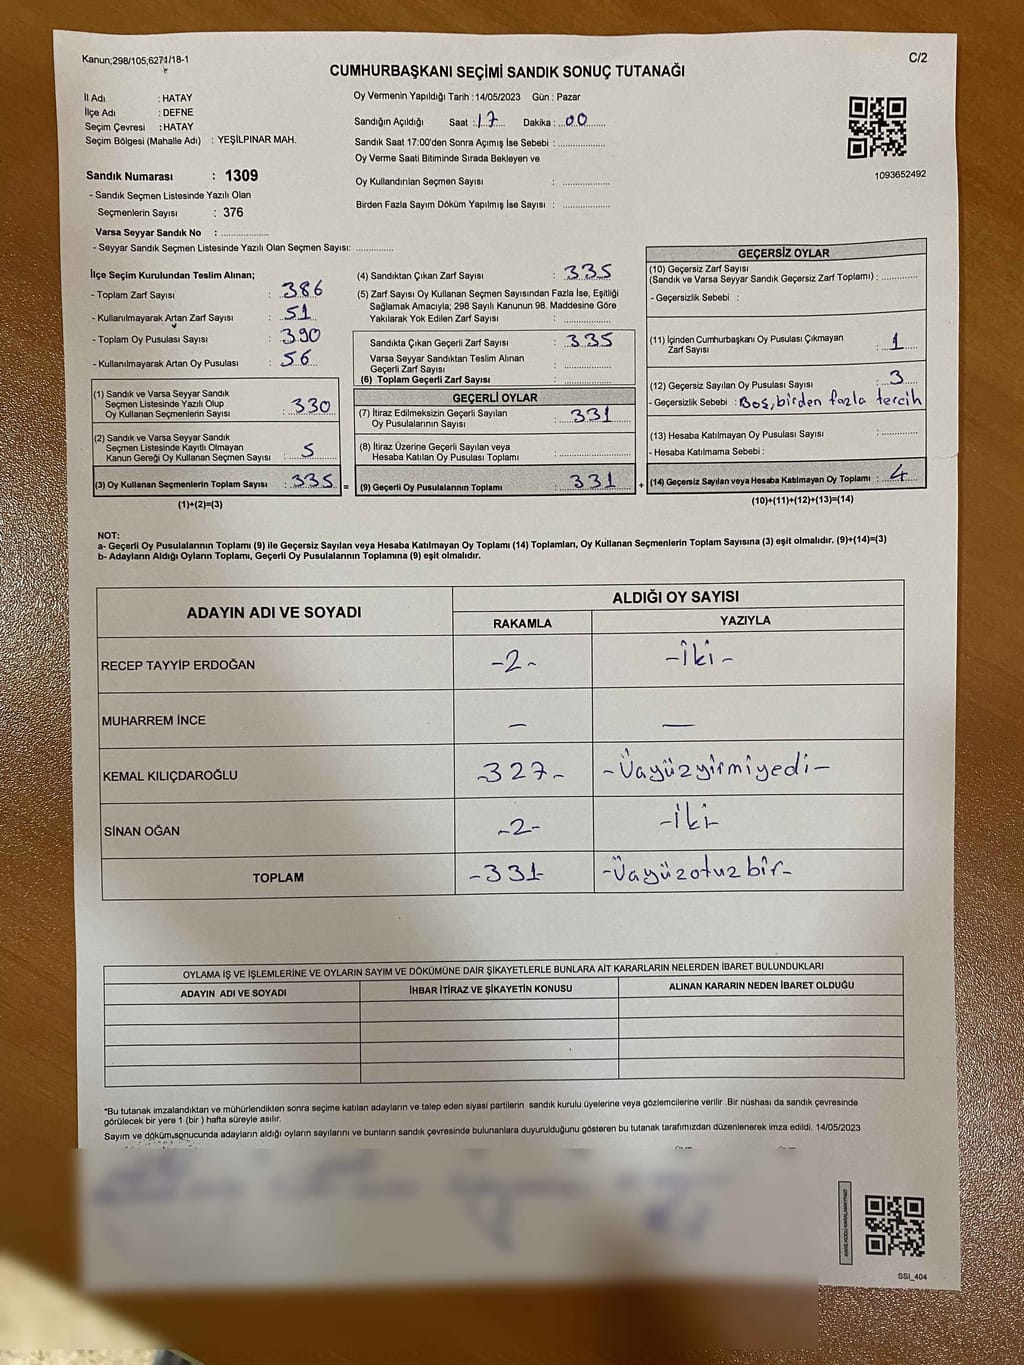 Kanun;298/105,6271/18-1
C/2
CUMHURBAŞKANI SEÇİMİ SANDIK SONUÇ TUTANAĞI
İl Adı : HATAY
İlçe Adı : DEFNE
Seçim Çevresi : HATAY
Seçim Bölgesi (Mahalle Adı) : YEŞİLPINAR MAH.
Sandık Numarası : 1309
- Sandık Seçmen Listesinde Yazılı Olan
Seçmenlerin Sayısı : 376
Varsa Seyyar Sandık No : ..................
- Seyyar Sandık Seçmen Listesinde Yazılı Olan Seçmen Sayısı: ..............
Oy Vermenin Yapıldığı Tarih : 14/05/2023 Gün : Pazar
Sandığın Açıldığı Saat : 17 Dakika : 00
Sandık Saat 17:00'den Sonra Açımış İse Sebebi : ..................
Oy Verme Saati Bitiminde Sırada Bekleyen ve
Oy Kullandırılan Seçmen Sayısı : ..................
Birden Fazla Sayım Döküm Yapılmış İse Sayısı : ..................
1093652492
İlçe Seçim Kurulundan Teslim Alınan;
- Toplam Zarf Sayısı : 386
- Kullanılmayarak Artan Zarf Sayısı : 51
- Toplam Oy Pusulası Sayısı : 390
- Kullanılmayarak Artan Oy Pusulası : 56
(1) Sandık ve Varsa Seyyar Sandık
Seçmen Listesinde Yazılı Olup
Oy Kullanan Seçmenlerin Sayısı : 330
(2) Sandık ve Varsa Seyyar Sandık
Seçmen Listesinde Kayıtlı Olmayan
Kanun Gereği Oy Kullanan Seçmen Sayısı : 5
(3) Oy Kullanan Seçmenlerin Toplam Sayısı : 335 =
(1)+(2)=(3)
(4) Sandıktan Çıkan Zarf Sayısı : 335
(5) Zarf Sayısı Oy Kullanan Seçmen Sayısından Fazla İse, Eşitliği
Sağlamak Amacıyla; 298 Sayılı Kanunun 98. Maddesine Göre
Yakılarak Yok Edilen Zarf Sayısı : ..................
Sandıkta Çıkan Geçerli Zarf Sayısı : 335
Varsa Seyyar Sandıktan Teslim Alınan
Geçerli Zarf Sayısı : ..................
(6) Toplam Geçerli Zarf Sayısı : ..................
GEÇERLİ OYLAR
(7) İtiraz Edilmeksizin Geçerli Sayılan
Oy Pusulalarının Sayısı : 331
(8) İtiraz Üzerine Geçerli Sayılan veya
Hesaba Katılan Oy Pusulası Toplamı : ..................
(9) Geçerli Oy Pusulalarının Toplamı : 331 +
GEÇERSİZ OYLAR
(10) Geçersiz Zarf Sayısı
(Sandık ve Varsa Seyyar Sandık Geçersiz Zarf Toplamı) : ............
- Geçersizlik Sebebi :
(11) İçinden Cumhurbaşkanı Oy Pusulası Çıkmayan
Zarf Sayısı : 1
(12) Geçersiz Sayılan Oy Pusulası Sayısı : 3
- Geçersizlik Sebebi : Boş, birden fazla tercih
(13) Hesaba Katılmayan Oy Pusulası Sayısı : ............
- Hesaba Katılmama Sebebi :
(14) Geçersiz Sayılan veya Hesaba Katılmayan Oy Toplamı : 4
(10)+(11)+(12)+(13)=(14)
NOT:
a- Geçerli Oy Pusulalarının Toplamı (9) ile Geçersiz Sayılan veya Hesaba Katılmayan Oy Toplamı (14) Toplamları, Oy Kullanan Seçmenlerin Toplam Sayısına (3) eşit olmalıdır. (9)+(14)=(3)
b- Adayların Aldığı Oyların Toplamı, Geçerli Oy Pusulalarının Toplamına (9) eşit olmalıdır.
ADAYIN ADI VE SOYADI
ALDIĞI OY SAYISI
RAKAMLA YAZIYLA
RECEP TAYYİP ERDOĞAN -2- -iki-
MUHARREM İNCE - —
KEMAL KILIÇDAROĞLU -327- -Üçyüzyirmiyedi-
SİNAN OĞAN -2- -iki-
TOPLAM -331- -Üçyüzotuzbir-
OYLAMA İŞ VE İŞLEMLERİNE VE OYLARIN SAYIM VE DÖKÜMÜNE DAİR ŞİKAYETLERLE BUNLARA AİT KARARLARIN NELERDEN İBARET BULUNDUKLARI
ADAYIN ADI VE SOYADI İHBAR İTİRAZ VE ŞİKAYETİN KONUSU ALINAN KARARIN NEDEN İBARET OLDUĞU
*Bu tutanak imzalandıktan ve mühürlendikten sonra seçime katılan adayların ve talep eden siyasi partilerin sandık kurulu üyelerine veya gözlemcilerine verilir .Bir nüshası da sandık çevresinde
görülecek bir yere 1 (bir ) hafta süreyle asılır.
Sayım ve döküm sonucunda adayların aldığı oyların sayılarını ve bunların sandık çevresinde bulunanlara duyurulduğunu gösteren bu tutanak tarafımızdan düzenlenerek imza edildi. 14/05/2023
KARE KODU KARALAMAYINIZ!
SSI_404